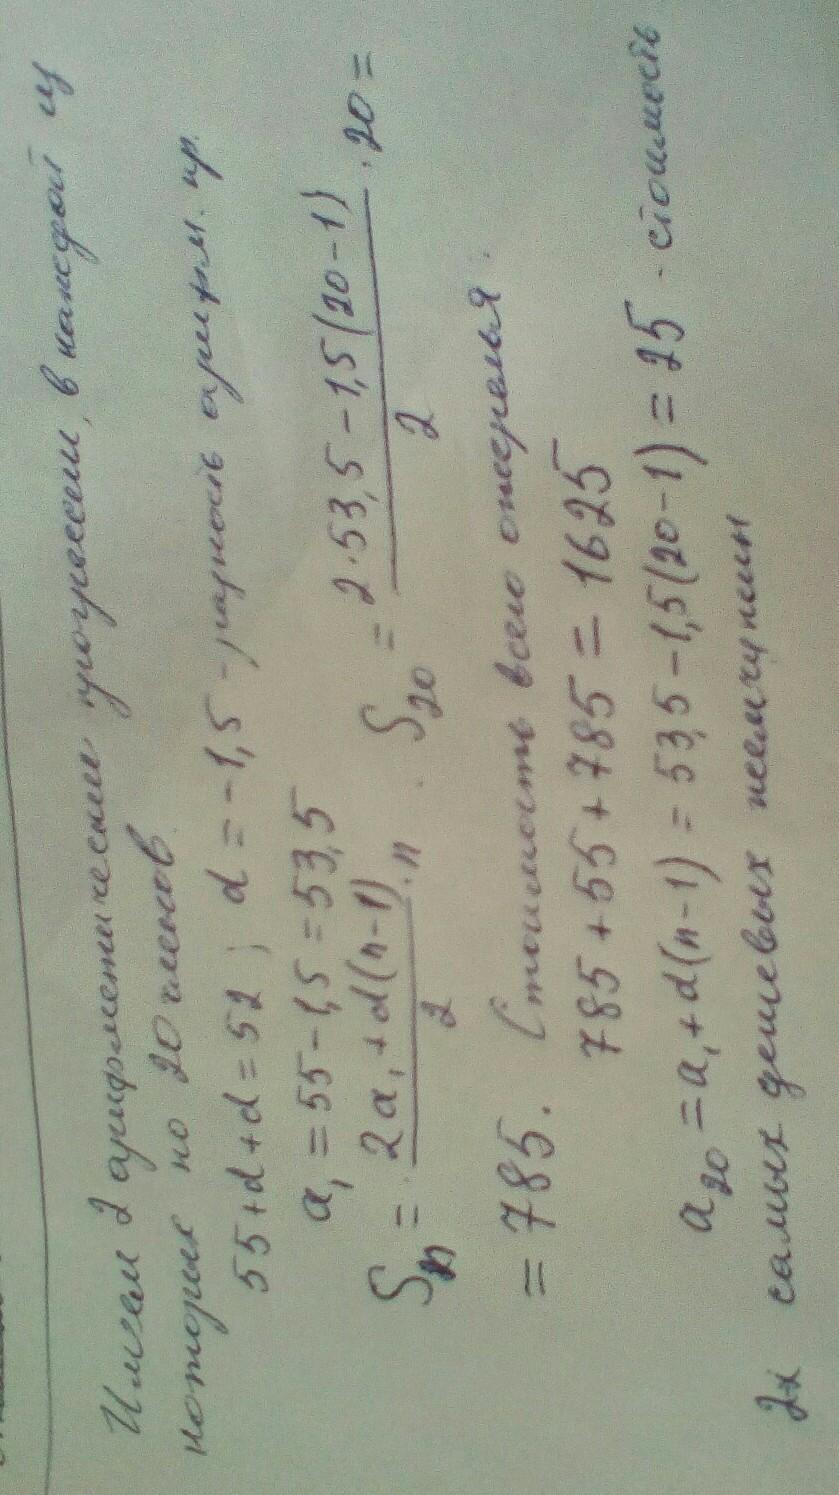 Имеем 2 арифметические прогрессии, в каждой из
которых по 20 членов.
55+d+d=52; d=-1,5 - разность арифм. пр.
a₁=55-1,5=53,5
Sₙ = (2a₁+d(n-1))/2 · n. S₂₀ = (2·53,5-1,5(20-1))/2 · 20 =
= 785. Стоимость всего ожерелья:
785+55+785=1625
a₂₀=a₁+d(n-1)=53,5-1,5(20-1)=25 - стоимость
2х самых дешевых жемчужин